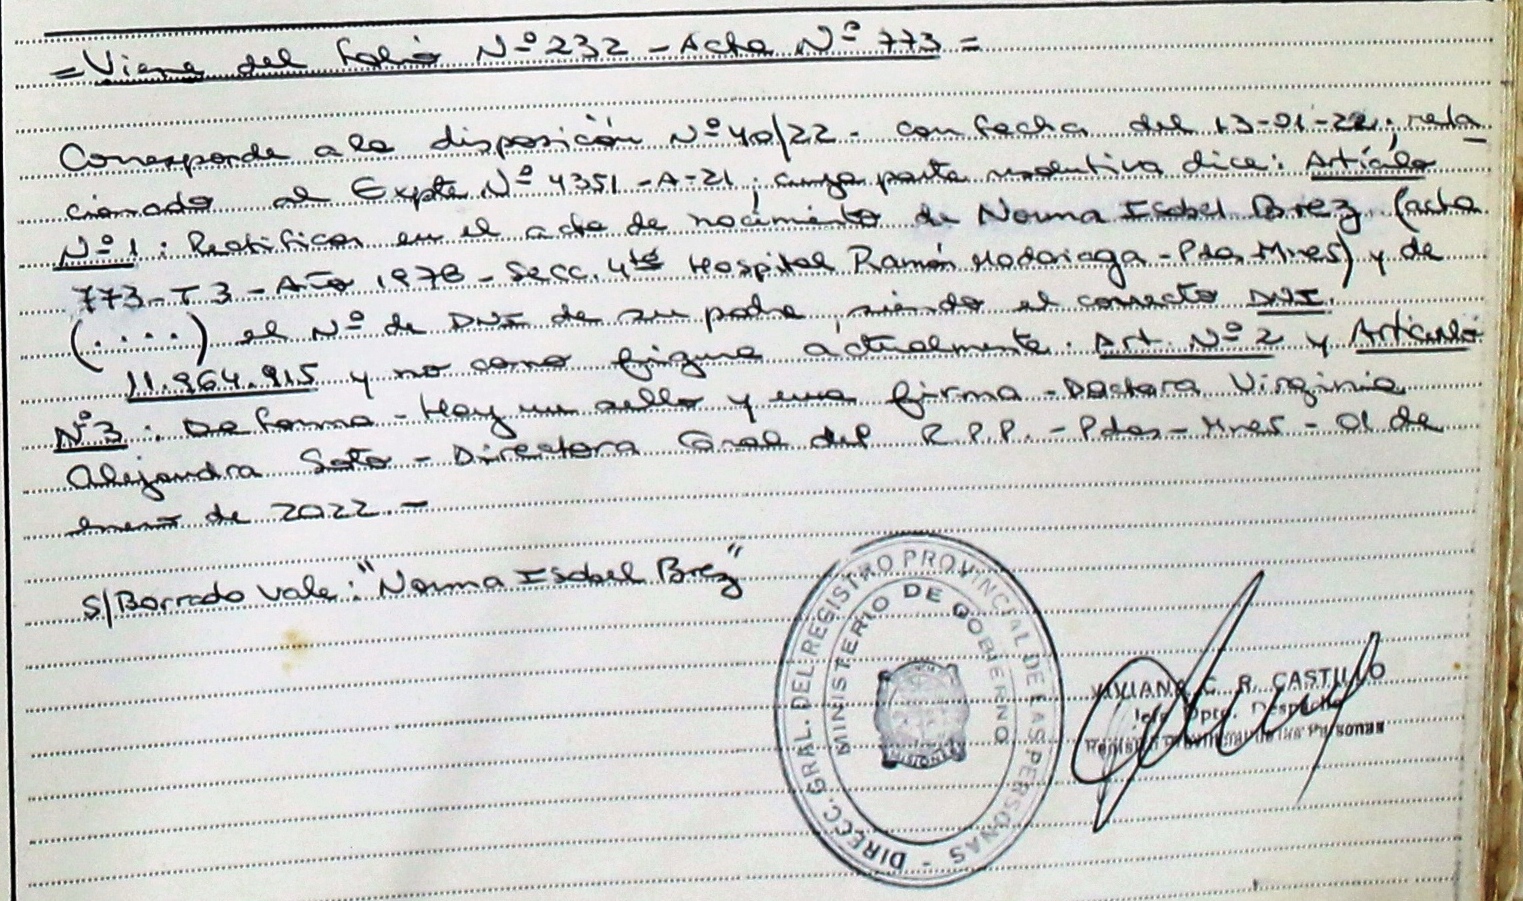 = Viene del folio Nº 232 - Acta Nº 773 =
Corresponde a la disposición Nº 40/22 - con fecha del 13-01-22; rela
cionado al Expte Nº 4351 - A - 21; cuya parte resolutiva dice: Artículo
Nº 1: Rectificar en el acta de nacimiento de Norma Isabel Brez (acta
773 - T 3 - Año 1978 - Secc. 4ta Hospital Ramón Madariaga - Pdas. Mnes) y de
(....) el Nº de DNI de su padre, siendo el correcto DNI.
11.964.915 y no como figura actualmente. Art. Nº 2 y Artículo
Nº 3: De forma - Hay un sello y una firma - Doctora Virginia
Alejandra Soto - Directora Gral del R.P.P. - Pdas - Mnes - 01 de
enero de 2022. -
S/Borrado Vale: "Norma Isabel Brez"
DIRECC. GRAL. DEL REGISTRO PROVINCIAL DE LAS PERSONAS -
MINISTERIO DE GOBIERNO
MISIONES
VIVIANA C. R. CASTILLO
Jefe Dpto. Despacho
Registro Provincial de las Personas